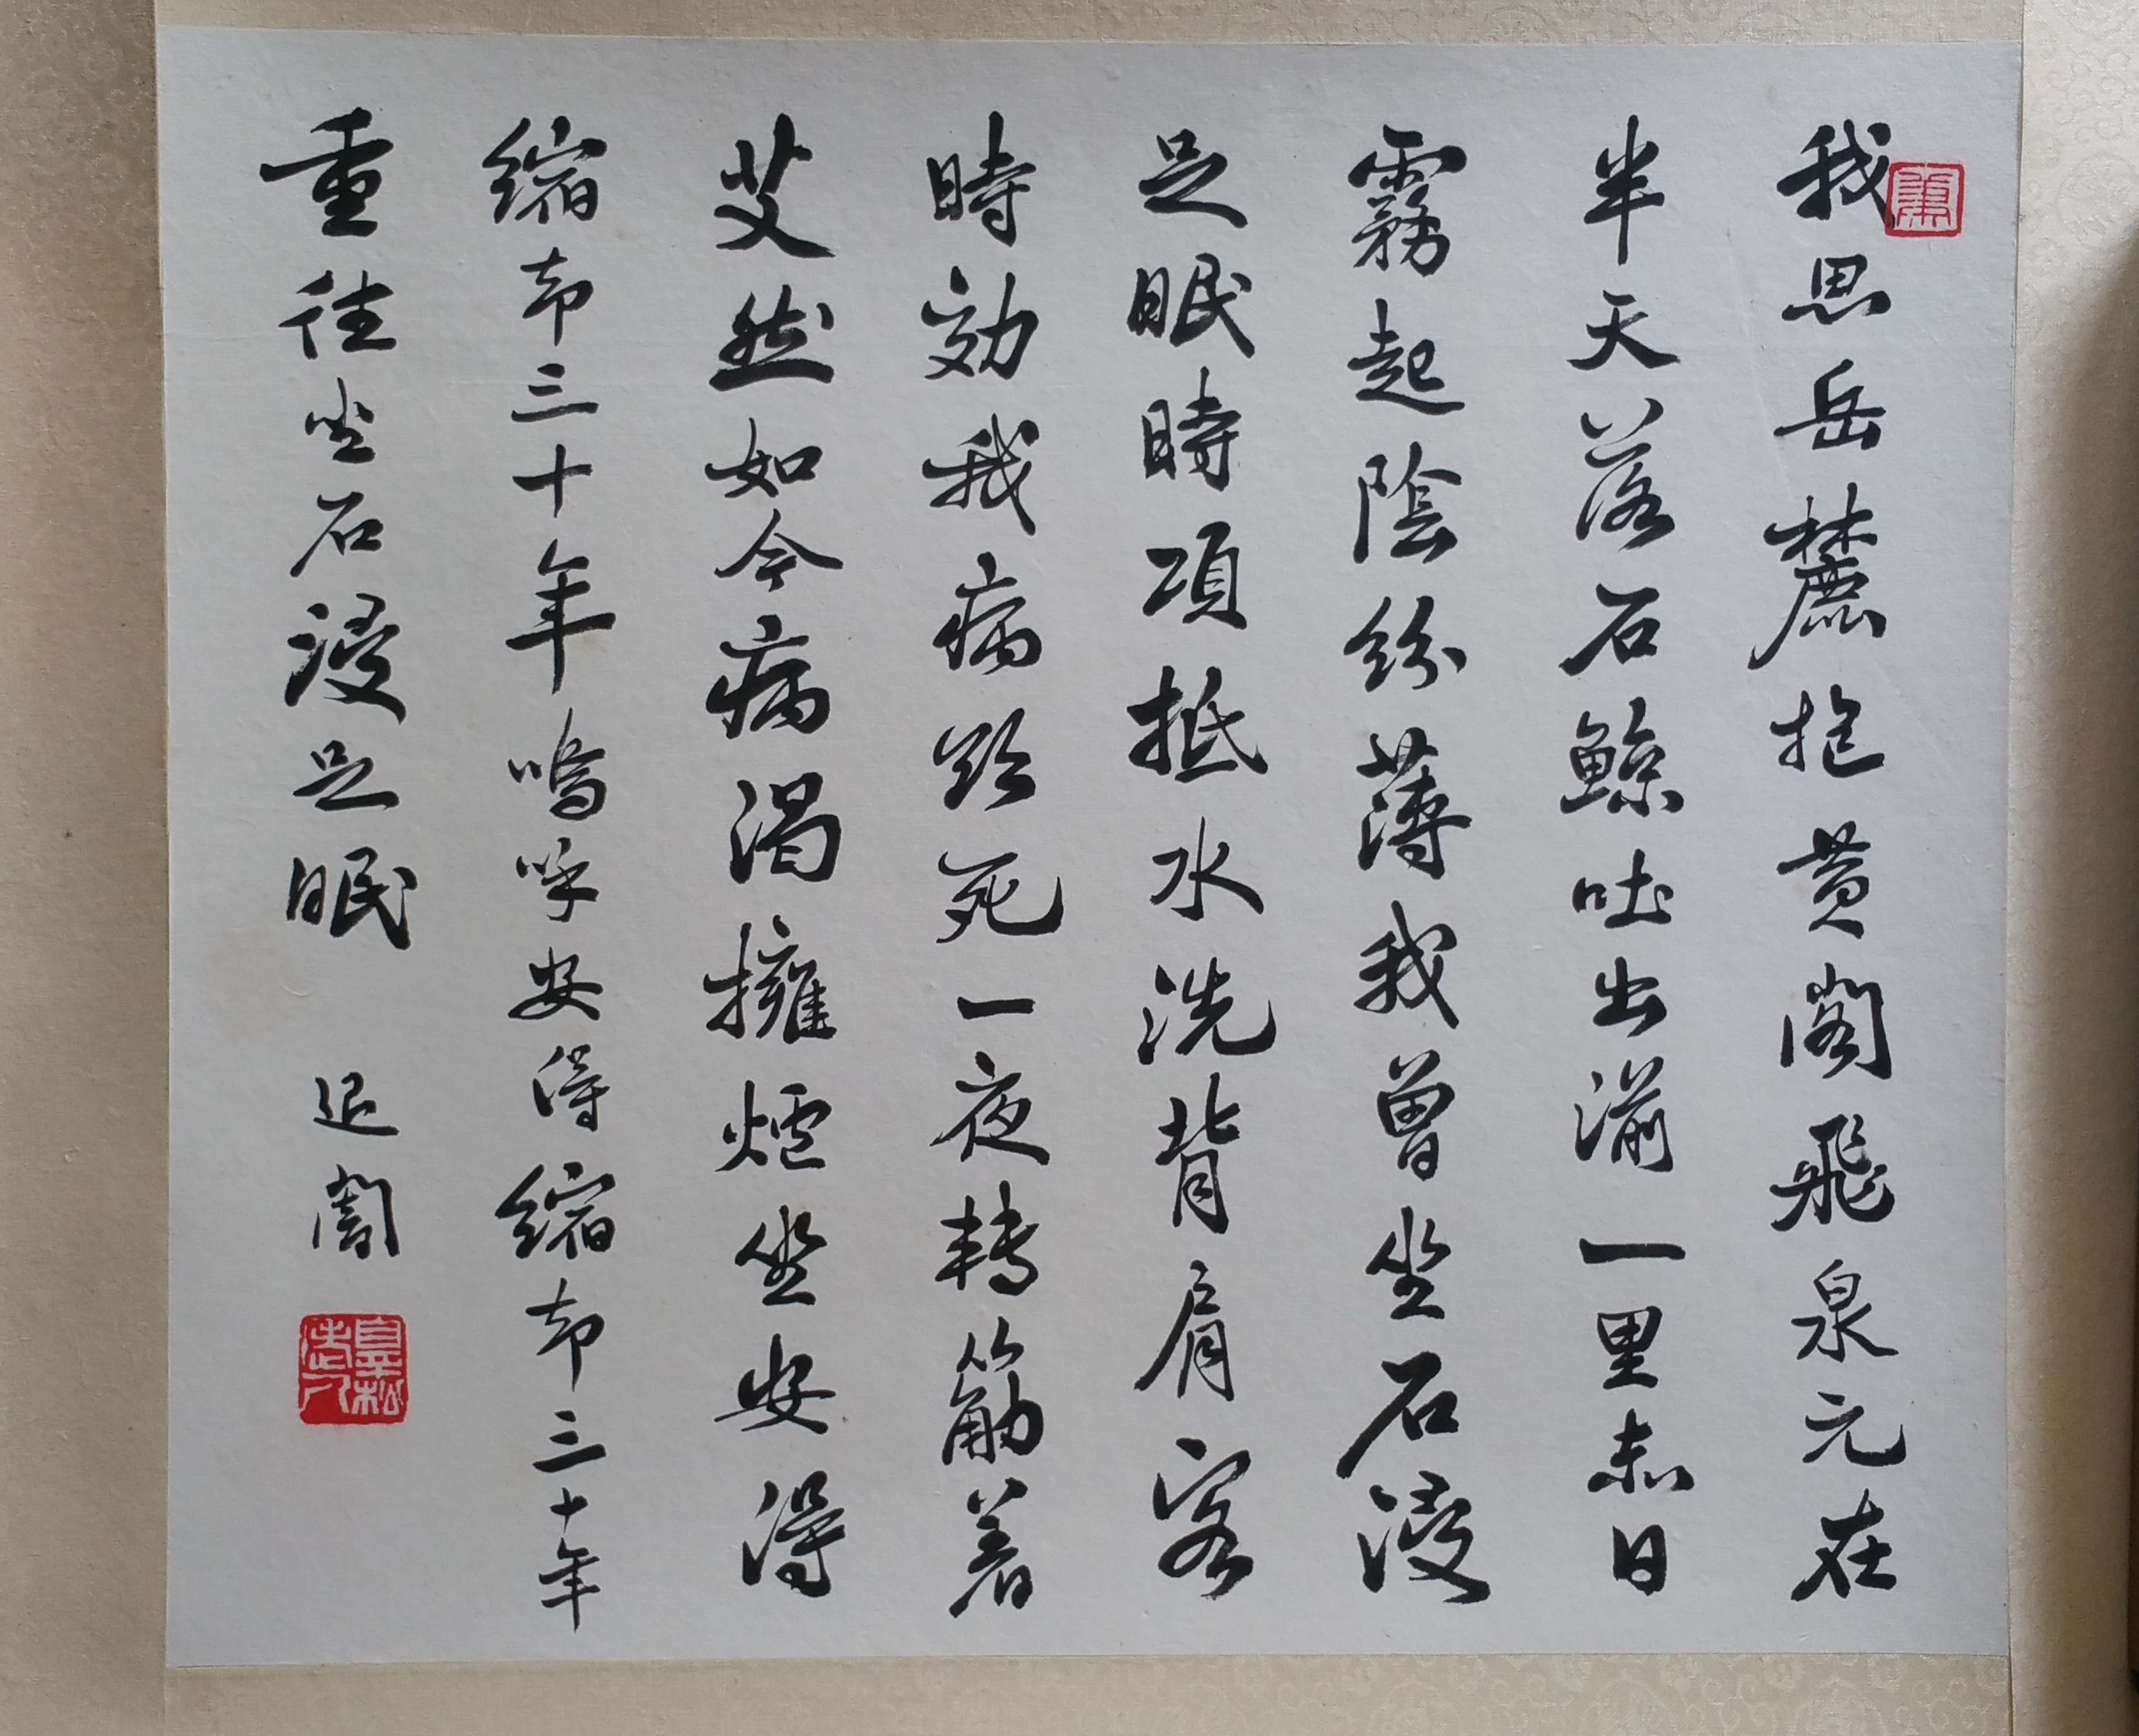 我思岳麓抱黃閣飛泉元在
半天落石鯨吐出湔一里赤日
霧起陰紛薄我曾坐石浸
足眠時項抵水洗背肩客
時效我病欲死一夜轉筋著
艾然如今病渴擁爐坐安得
縮却三十年嗚呼安得縮却三十年
重往坐石浸足眠
退闇